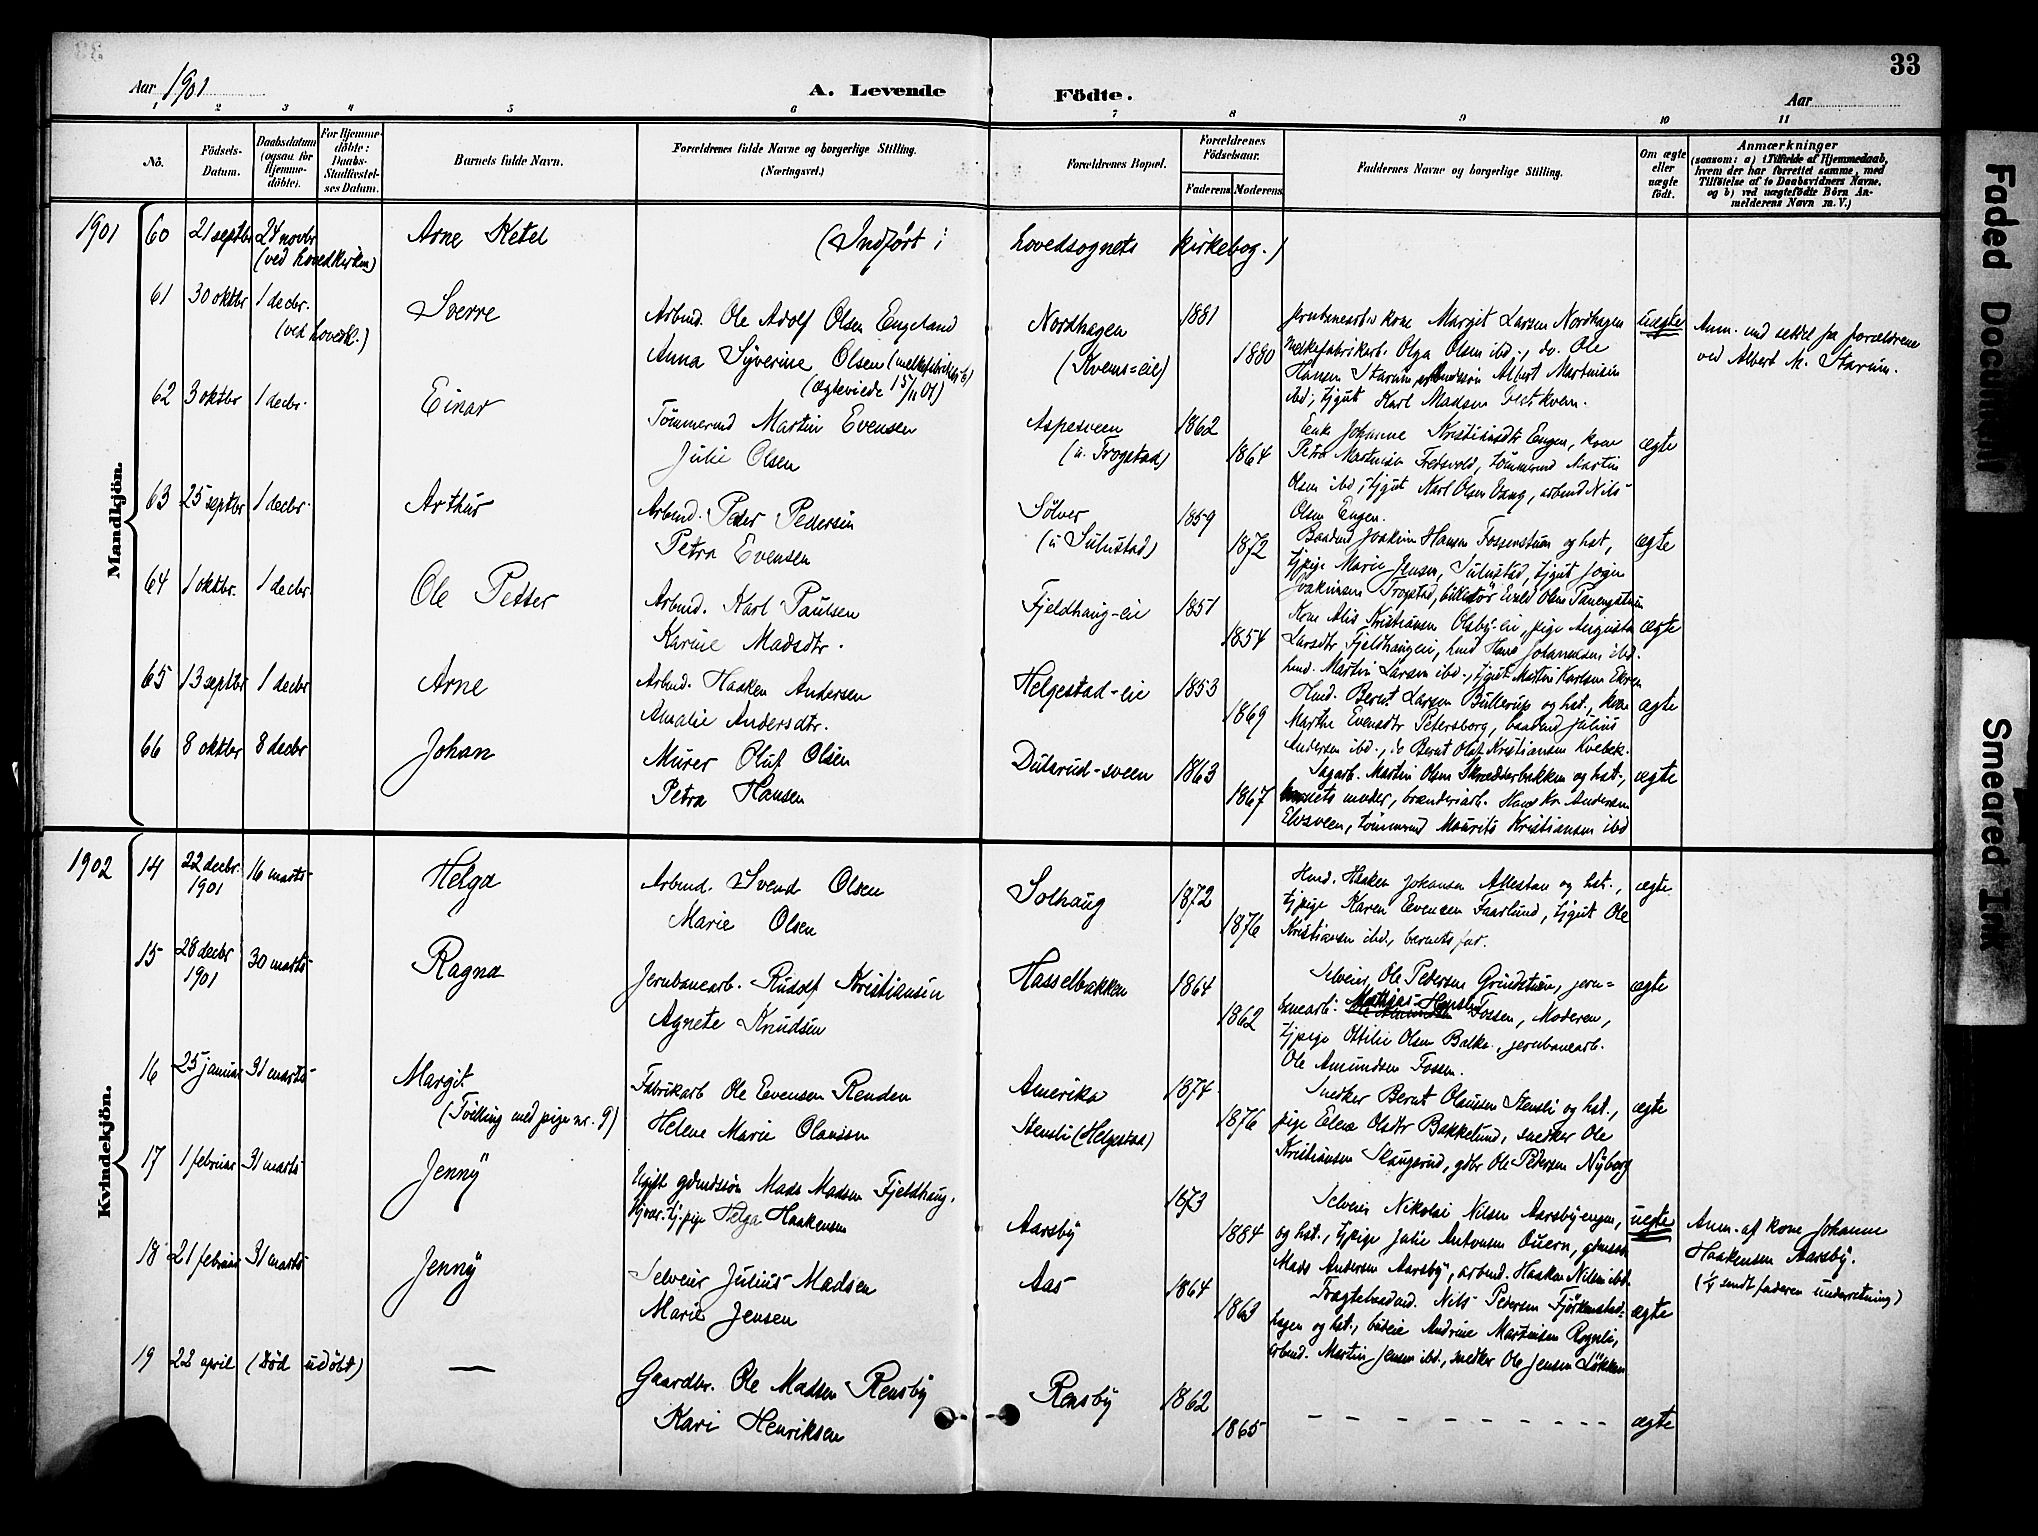 33
Aar 1901
A. Levende Födte.
Aar
1 2 3 4 5 6 7 8 9 10 11
No.
Födsels-Datum.
Daabsdatum (ogsaa for Hjemme-döbte).
For Hjemme-döbte: Daabs-Stadfæstel-ses Datum.
Barnets fulde Navn.
Forældrenes fulde Navne og borgerlige Stilling. (Næringsvei.)
Forældrenes Bopæl.
Forældrenes Födselsaar.
Faderens Moderens
Faddernes Navne og borgerlige Stilling.
Om ægte eller uægte födt.
Anmærkninger
(saasom: a) i Tilfælde af Hjemmedaab,
hvem der har forrettet samme, med
Tilföielse af to Daabsvidners Navne,
og b) ved uægtefödte Börn An-
melderens Navn m. V.)
Mandkjön.
1901 60 21 septbr 24 novbr (ved hovedkirken) Arne Ketel (Indført i hovedsognets kirkebog.)
61 30 oktbr 1 decbr. (ved hovedk.) Sverre
Arbmd. Ole Adolf Olsen Engeland
Anna Syverine Olsen (melkefabrikarb.)
(ægteviede 15/11 01)
Nordhagen (Kvems-eie) 1881 1880
Jernbanearb.s kone Margit Larsen Nordhagen
melkefabrikarb. Olga Olsen ibd., do. Ole
Hansen Starum, Albert Martinsen
ibd., tjgut Karl Madsen
uægte
Anm. med seddel fra forældrene
ved Albert M. Starum.
62 3 oktbr 1 decbr. Einar
Tømmermd Martin Evensen
Julie Olsen
Aspesveen (u. Frogstad) 1862 1864
Enke Johanne Kristiansdtr Engen, kone
Petra Martinsen Fredsvold, tømmermd Martin
Olsen ibd., tjgut Karl Olsen Vang, arbmd Nils
Olsen Engen.
ægte
63 25 septbr 1 decbr. Arthur
Arbmd. Peder Pedersen
Petra Evensen
Sølver (u Sulustad) 1859 1872
Baadmd Joakim Hansen Fossenstuen og hst.,
tjpige Marie Jensen, Sulustad, tjgut Jørgen
Joakimsen Frogstad,
ægte
64 1 oktbr. 1 decbr. Ole Petter
Arbmd. Karl Paulsen
Karine Madsdtr.
Fjeldhaug-eie 1851 1854
Kone Alis Kristiansen Olsby-eie, pige Augusta
Larsdtr. Fjeldhaugeie, hmd Hans Johannesen ibd.
hmd. Martin Larsen ibd., tjgut Martin Karlsen Ekren
ægte
65 13 septbr 1 decbr Arne
Arbmd. Haaken Andersen
Amalie Andersdtr.
Helgestad-eie 1853 1869
Hmd. Bernt Larsen Bullerup og hst., kone
Marthe Evensdtr Petersborg, baadmd Julius
Andersen ibd., do Bernt Olaf Kristiansen Kvebek.
ægte
66 8 oktbr 8 decbr Johan
Murer Oluf Olsen
Petra Hansen
Dulsrud-sveen 1863 1867
Sagarb. Martin Olsen Skrædderbakken og hst.,
barnets moder, brænderiarb. Hans Kr. Andersen
Elvsveen, tømmermd Maurits Kristiansen ibd
ægte
Kvindekjön.
1902 14 22 decbr. 1901 16 marts Helga
Arbmd. Svend Olsen
Marie Olsen
Solhaug 1872 1876
Hmd. Haaken Johansen Allestau og hst.,
tjpige Karen Evensen Faarlund, tjgut Ole
Kristiansen ibd., barnets far.
ægte
15 28 decbr 1901 30 marts Ragna
Jernbanearb. Rudolf Kristiansen
Agnete Knudsen
Hasselbakken 1864 1862
Selveier Ole Pedersen Grindstuen, jern-
banearb. Mathias Hansen Fossen, Moderen,
tjpige Ottilie Olsen Balke, jernbanearb.
Ole Amundsen Fossen.
ægte
16 25 januar 31 marts Margit
(Tvilling med pige nr. 9)
Fabrikarb Ole Evensen Renden
Helene Marie Olaussen
Amerika
Stensli (Helgestad) 1874 1876
Snedker Bernt Olaussen Stensli og hst.,
pige Elena Olsdtr Bakkelund, snedker Ole
Kristiansen Slaugerud, gdbr Ole Pedersen Nyborg
ægte
17 1 februar 31 marts Jenny
Ugift gdmdssøn Mads Madsen Fjeldhaug.
tj.pige Helga Haakensen
Aarsby 1873 1884
Selveier Nikolai Nilsen Aarsbyengen,
og hst., tjpige Julie Antonsen Quern, gdmssøn
Mads Andersen Aarsby, arbmd. Haaken Nilsen ibd.
uegte
Anm. af kone Johanne
Haakensen Aarsby.
sendt faderen underretning)
18 21 februar 31 marts Jenny
Selveier Julius Madsen
Marie Jensen
Aas 1864 1863
Nils Pedersen
hagen og hst., budeie Andrine Martinsen Rognli,
arbmd. Martin Jensen ibd., snedker Ole Jensen Løkken
ægte
19 22 april (død udöbt) —
Gaardbr. Ole Madsen Rensby
Kari Henriksen
Rensby 1862 1865
– – – – – – – – – –
ægte
Faded Document
Smeared Ink